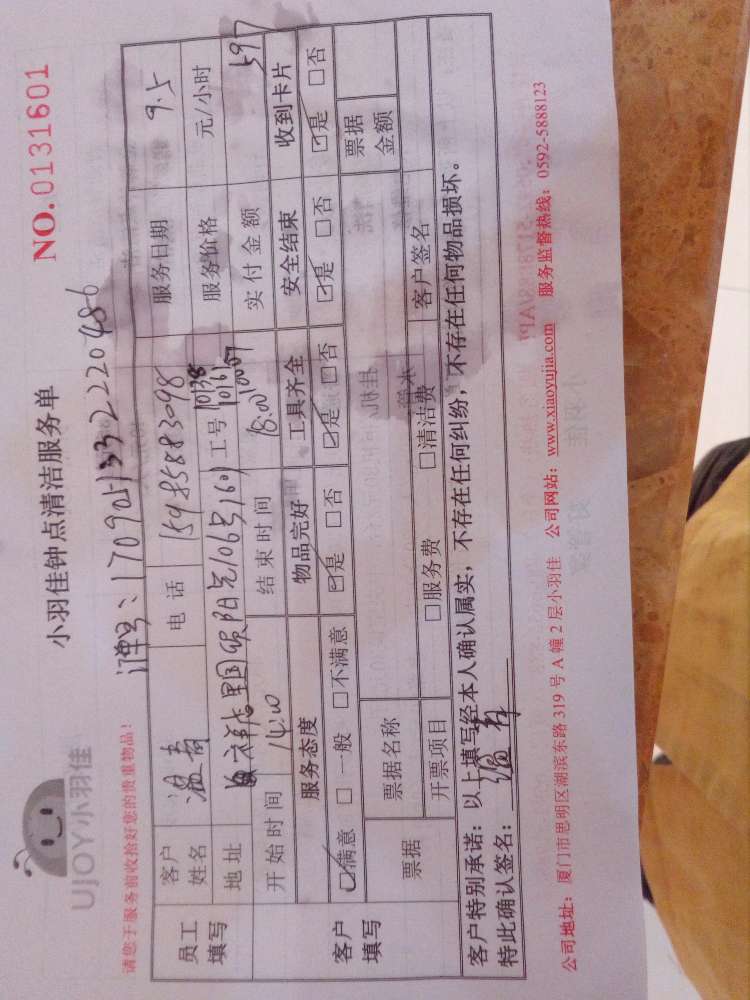 UJOY小羽佳
小羽佳钟点清洁服务单
NO.0131601
请您于服务前收拾好您的贵重物品!
1709051332220486
员工填写
客户姓名 温青 电话 15985883098 服务日期 9.5
地址 阳光106号1601 工号 10138 10161 10007 服务价格 元/小时
开始时间 14:00 结束时间 18:00 实付金额 597
客户填写
服务态度 物品完好 工具齐全 安全结束 收到卡片
☑满意 □一般 □不满意 ☑是 □否 ☑是 □否 ☑是 □否 ☑是 □否
票据 票据名称 票据金额
开票项目 □服务费 □清洁费 客户签名
客户特别承诺:以上填写经本人确认属实,不存在任何纠纷,不存在任何物品损坏。
特此确认签名:温青
公司地址:厦门市思明区湖滨东路319号A幢2层小羽佳 公司网站:www.xiaoyujia.com 服务监督热线:0592-5888123